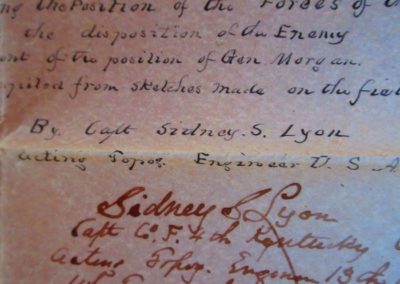 ng the Position of the Forces of
the disposition of the Enemy
ont of the position of Gen Morgan.
piled from sketches made on the fie
By Capt Sidney. S. Lyon
acting Topog. Engineer U. S. A
Sidney S Lyon
Capt Co. F. 4th Kentucky
acting Topog. Engineer 13th